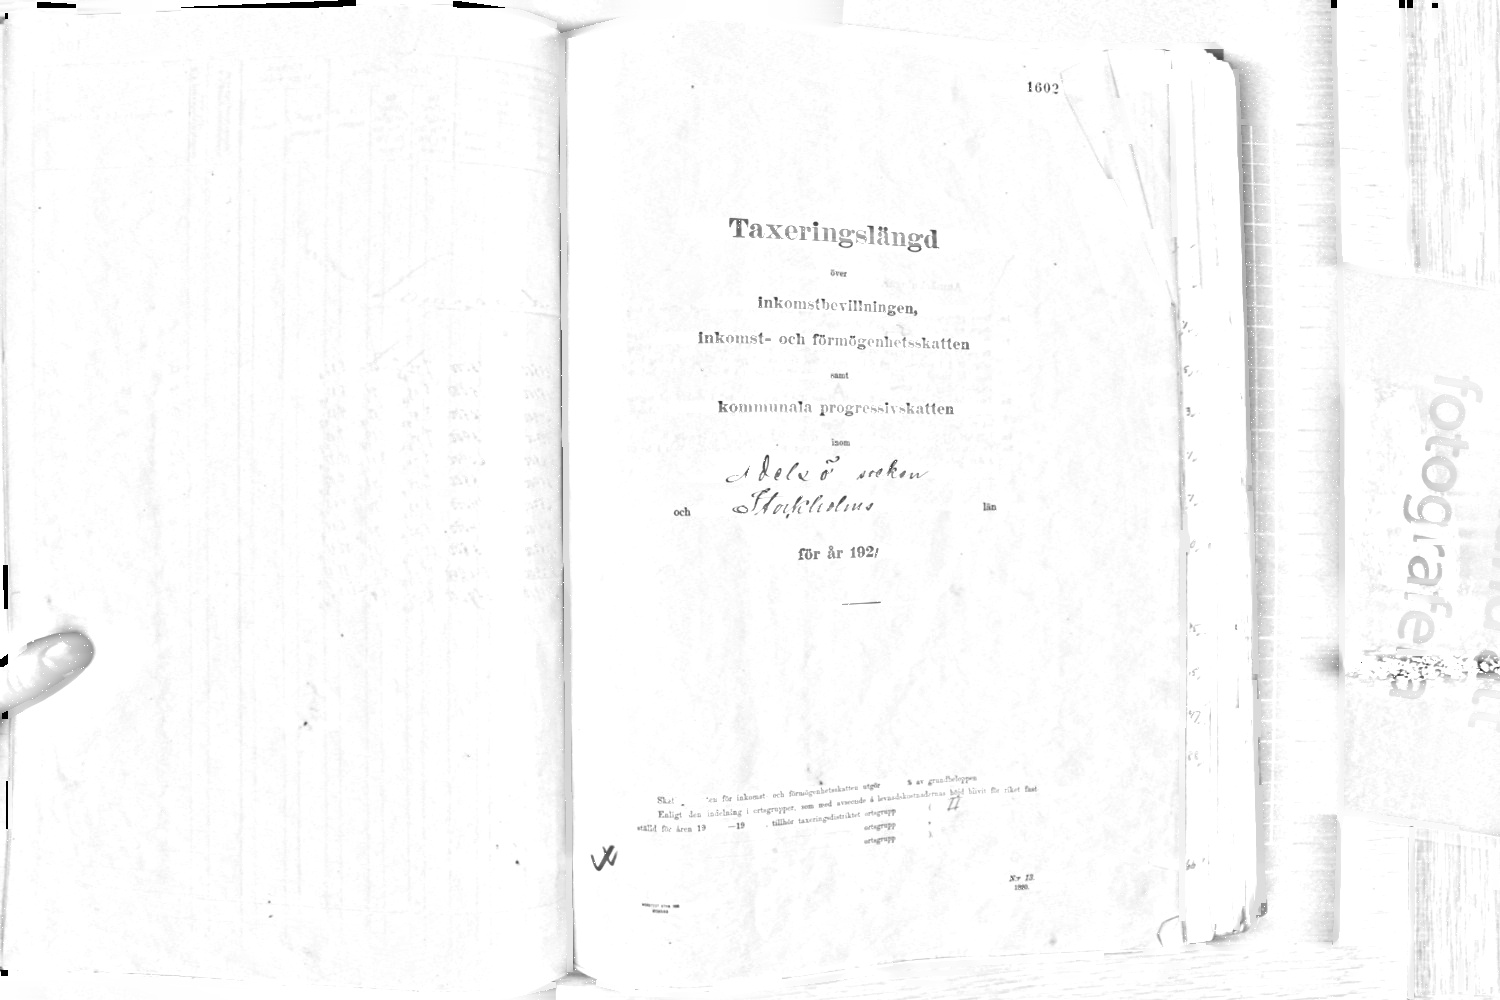 1602
Taxeringslängd
över
inkomstbevillningen,
inkomst- och förmögenhetsskatten
samt
kommunala progressivskatten
inom
Adelsö socken
och Stockholms län
för år 1921
Skat en för inkomst- och förmögenhetsskatten utgör % av grundbeloppen
Enligt den indelning i ortsgrupper, som med avseende å levnadskostnadernas höjd blivit för riket fast
ställd för åren 19 —19 , tillhör taxeringsdistriktet ortsgrupp II
ortsgrupp
ortsgrupp
N:r 12.
1920.
fotografe